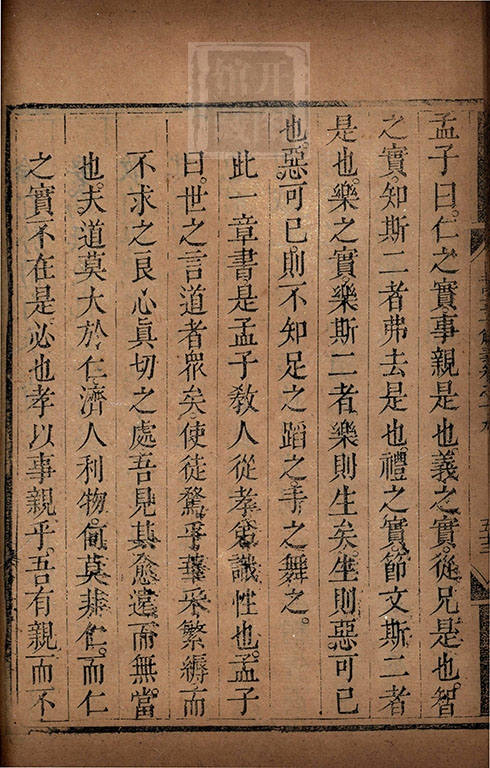 孟子曰。仁之實事親是也。義之實。從兄是也。智
之實。知斯二者弗去是也。禮之實。節文斯二者
是也。樂之實。樂斯二者。樂則生矣。生則惡可已
也。惡可已。則不知足之蹈之手之舞之。
此一章書是孟子教人從孝弟識性也。孟子
曰。世之言道者衆矣。使徒騖乎華采繁縟而
不求之良心眞切之處。吾見其愈遠而無當
也。夫道莫大於仁。濟人利物。何莫非仁。而仁
之實不在是必也孝以事親乎。吾有親而不